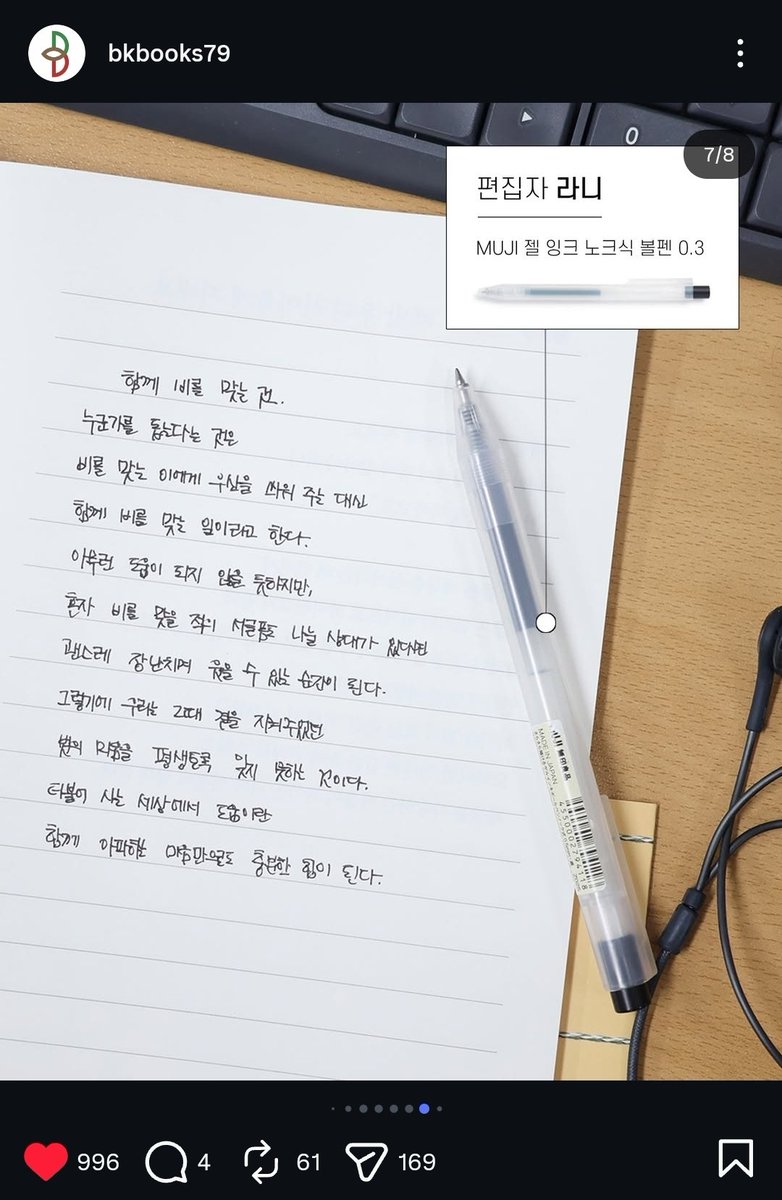 bkbooks79
7/8
편집자 라니
MUJI 젤 잉크 노크식 볼펜 0.3
함께 비를 맞는 것.
누군가를 돕는다는 것은
비를 맞는 이에게 우산을 씌워 주는 대신
함께 비를 맞는 일이라고 한다.
아무런 도움이 되지 않을 듯하지만,
혼자 비를 맞을 적의 서글픔도 나눌 상대가 있다면
괜스레 장난치며 웃을 수 있는 순간이 된다.
그렇기에 우리는 그때 곁을 지켜주었던
벗의 마음을 평생토록 잊지 못하는 것이다.
더불어 사는 세상에서 도움이란
함께 아파하는 마음만으로도 충분한 힘이 된다.
0
無印良品
MADE IN JAPAN
4550002794118
996
4
61
169